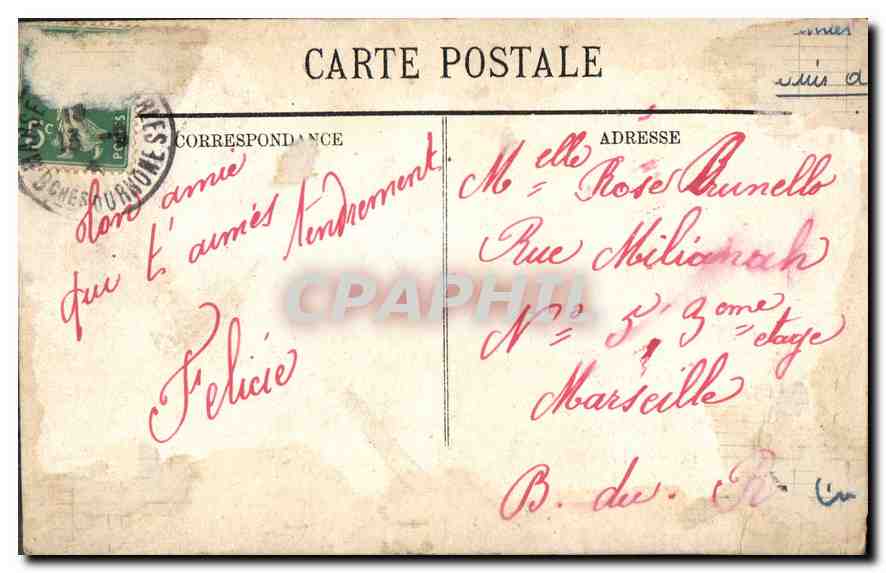 CARTE POSTALE
CORRESPONDANCE
ton amie
qui t'aimes tendrement
Felicie
ADRESSE
Melle Rose Brunello
Rue Milianah
No 5 3eme etage
Marseille
B. du. R
5c
POSTES
CPAPHIL